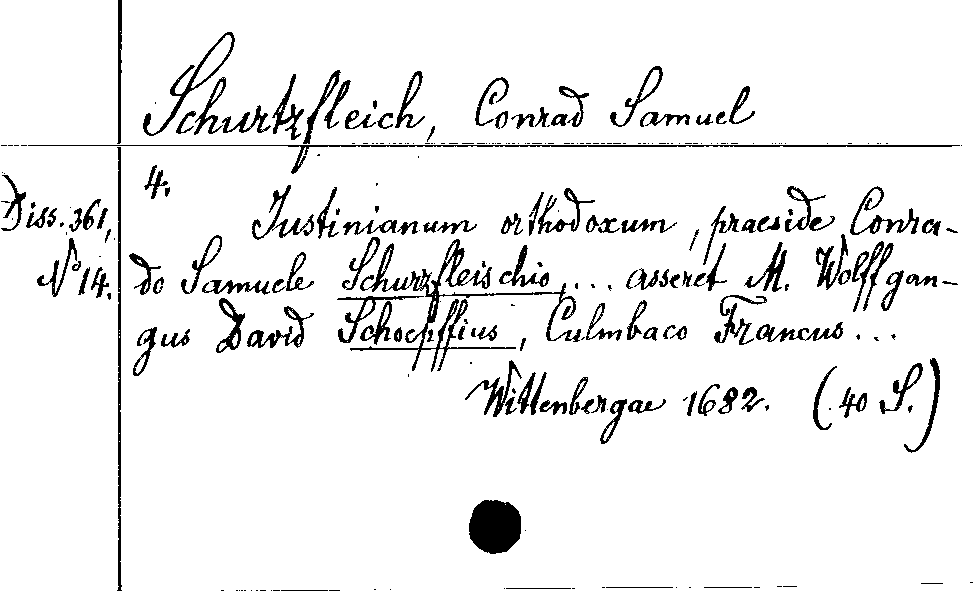 Schurtzfleich, Conrad Samuel
4.
Diss. 361,
Nº 14.
Iustinianum orthodoxum, praeside Conra-
do Samuele Schurzfleischio, ... asseret M. Wolffgan-
gus David Schoepffius, Culmbaco Francus ...
Wittenbergae 1682. (40 S.)